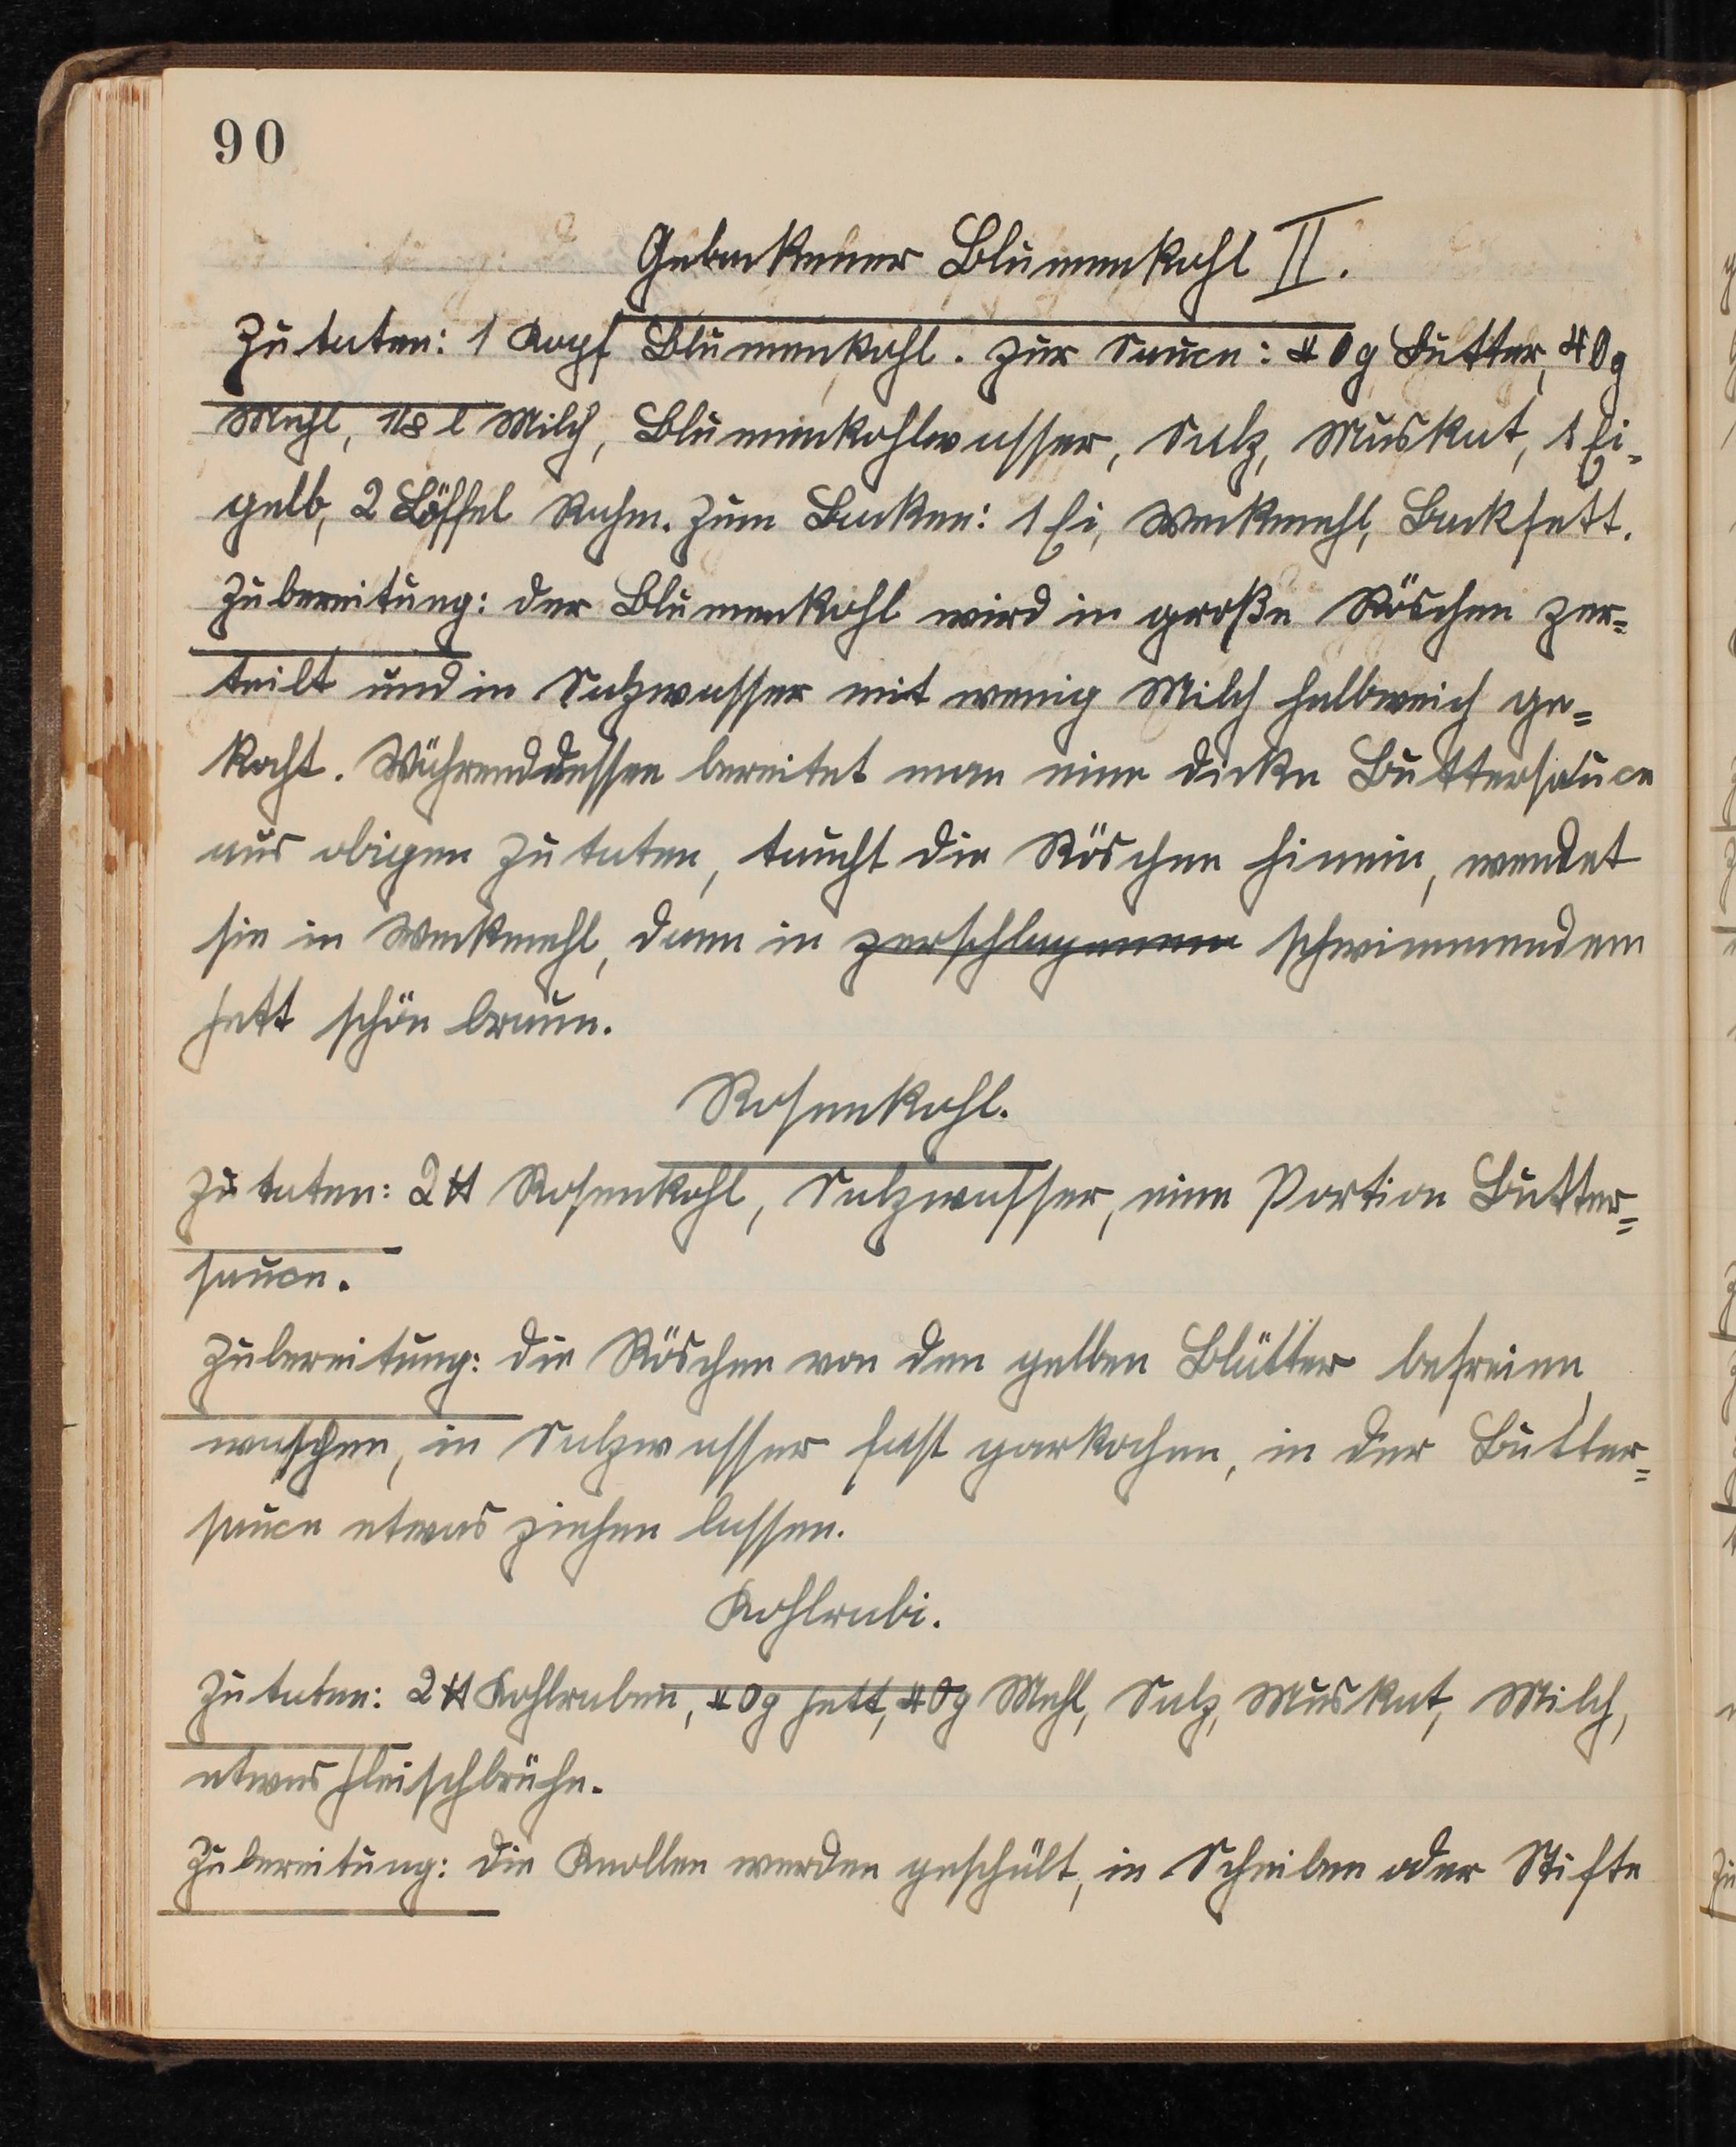 90
Gebackener Blumenkohl II.
Zutaten: 1 Kopf Blumenkohl. Zur Sauce: 40g Butter, 40g
Mehl, 1/8 l Milch, Blumenkohlwasser, Salz, Muskat, 1 Ei-
gelb, 2 Löffel Rahm. Zum Backen: 1 Ei, Weckmehl, Backfett.
Zubereitung: Der Blumenkohl wird in große Röschen zer=
teilt und in Salzwasser mit wenig Milch halbweich ge=
kocht. Währenddessen bereitet man eine dicke Buttersauce
aus obigen Zutaten, taucht die Röschen hinein, wendet
sie in Weckmehl, dann in zerschlagenem schwimmendem
Fett schön braun.
Rosenkohl.
Zutaten: 2 ℔ Rosenkohl, Salzwasser, eine Portion Butter=
sauce.
Zubereitung: Die Röschen von den gelben Blätter befreien,
waschen, in Salzwasser fast garkochen, in der Butter=
sauce etwas ziehen lassen.
Kohlrabi.
Zutaten: 2 ℔ Kohlraben, 40g Fett, 40g Mehl, Salz, Muskat, Milch,
etwas Fleischbrühe.
Zubereitung: Die Knollen werden geschält, in Scheiben oder Stifte